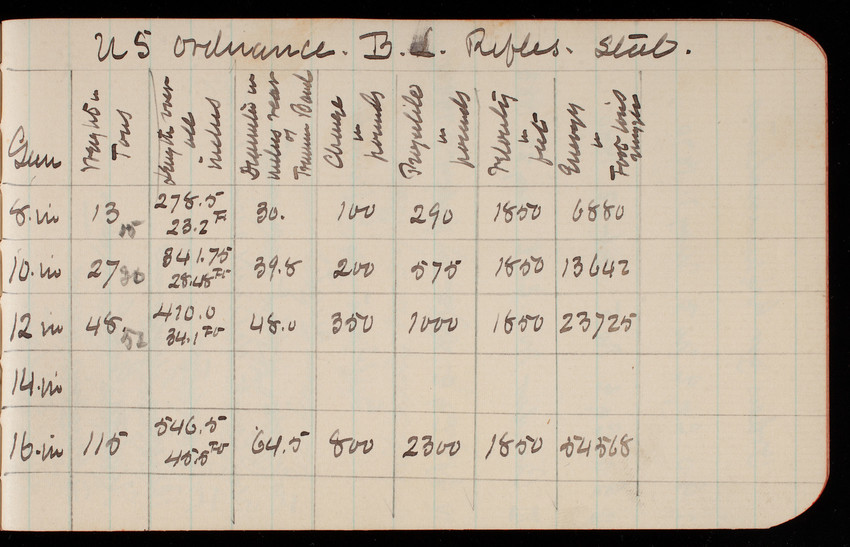 US Ordnance. B.L. Rifles. Steel.
Gun
Weight in Tons
Length over all inches
Diameter in inches rear of Trunion Band
Charge in pounds
Projectile in pounds
Velocity in feet
Energy in Foot tons
8.in 13 15 278.5 30. 100 290 1850 6880
23.2 Ft
10.in 27 30 341.75 39.8 200 575 1850 13642
28.48 Ft
12 in 48. 52 410.0 48.0 350 1000 1850 23725
34.1 Ft
14.in
16.in 115 546.5 64.5 800 2300 1850 54568
45.5 Ft